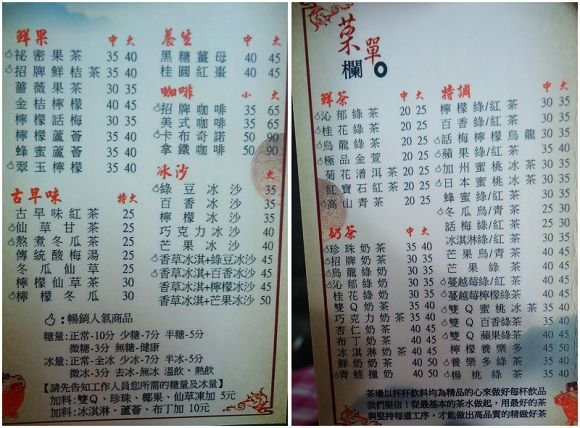 鮮果 中 大
祕密果茶 35 40
招牌鮮桔茶 35 40
薔薇果茶 30 35
金桔檸檬 40
檸檬話梅 30 35
檸檬蘆薈 35 40
蜂蜜蘆薈 35 40
翠玉檸檬 35 40
古早味 特大
古早味紅茶 25
仙草甘茶 25
熬煮冬瓜茶 25
傳統酸梅湯 25
冬瓜仙草 25
檸檬仙草茶 30
檸檬冬瓜 30
養生 中 大
黑糖薑母 40 45
桂圓紅棗 40 45
咖啡 小 大
招牌咖啡 35 65
美式咖啡 35 65
卡布奇諾 50 90
拿鐵咖啡 50 90
冰沙 大
綠豆冰沙 35
百香冰沙 35
檸檬冰沙 35
巧克力冰沙 40
芒果冰沙 40
香草冰淇+綠豆冰沙 45
香草冰淇+百香冰沙 45
香草冰淇+檸檬冰沙 45
香草冰淇+芒果冰沙 50
：暢銷人氣商品
糖量：正常-10分 少糖-7分 半糖-5分
微糖-3分 無糖-健康
冰量：正常-全冰 少冰-7分 半冰-5分
微冰-3分 去冰-無冰 溫飲、熱飲
【請先告知工作人員您所需的糖量及冰量】
加料：雙Q、珍珠、椰果、仙草凍加 5元
加料：冰淇淋、蘆薈、布丁加 10元
菜單欄
鮮茶 中 大
沁郁綠茶 20 25
桂花綠茶 20 25
烏龍綠茶 20 25
極品金萱 20 25
菊花普洱茶 20 25
紅寶石紅茶 20 25
高山青茶 20 25
奶茶 中 大
珍珠奶茶 35 40
招牌奶茶 30 35
烏龍綠奶 30 35
沁郁綠奶 30 35
桂花綠奶 30 35
雙Q奶茶 35 40
巧克力奶茶 35 40
杏仁奶茶 35 40
布丁奶茶 40 45
冰淇淋奶茶 40 45
仙奶凍奶 35 40
青蛙撞奶 40 50
特調 中 大
檸檬綠/紅茶 30 35
百香綠/紅茶 30 35
話梅檸檬烏龍 30 35
蘋果綠/紅茶 30 35
加州蜜桃冰茶 30 35
日本蜜桃冰茶 30 35
蜂蜜綠/紅茶 30 35
冬瓜烏/青茶 25 30
話梅綠/紅茶 25 30
冰淇淋綠/紅茶 30 35
芒果烏/青茶 35 40
芒果綠茶 35 40
蔓越莓綠/紅茶 35 40
蔓越莓檸檬綠茶 35 40
雙Q蜜桃冰茶 35 40
雙Q百香綠茶 35 40
雙Q蘋果綠茶 35 40
檸檬養樂多 40 45
養樂多綠茶 35 45
楊桃綠茶 30 35
茶壜以杯杯飲料均為精品的心來做好每杯飲品
我們堅信！從最基本的茶水做起，用最好的茶
與堅持每道工序，才能做出高品質的精緻好茶